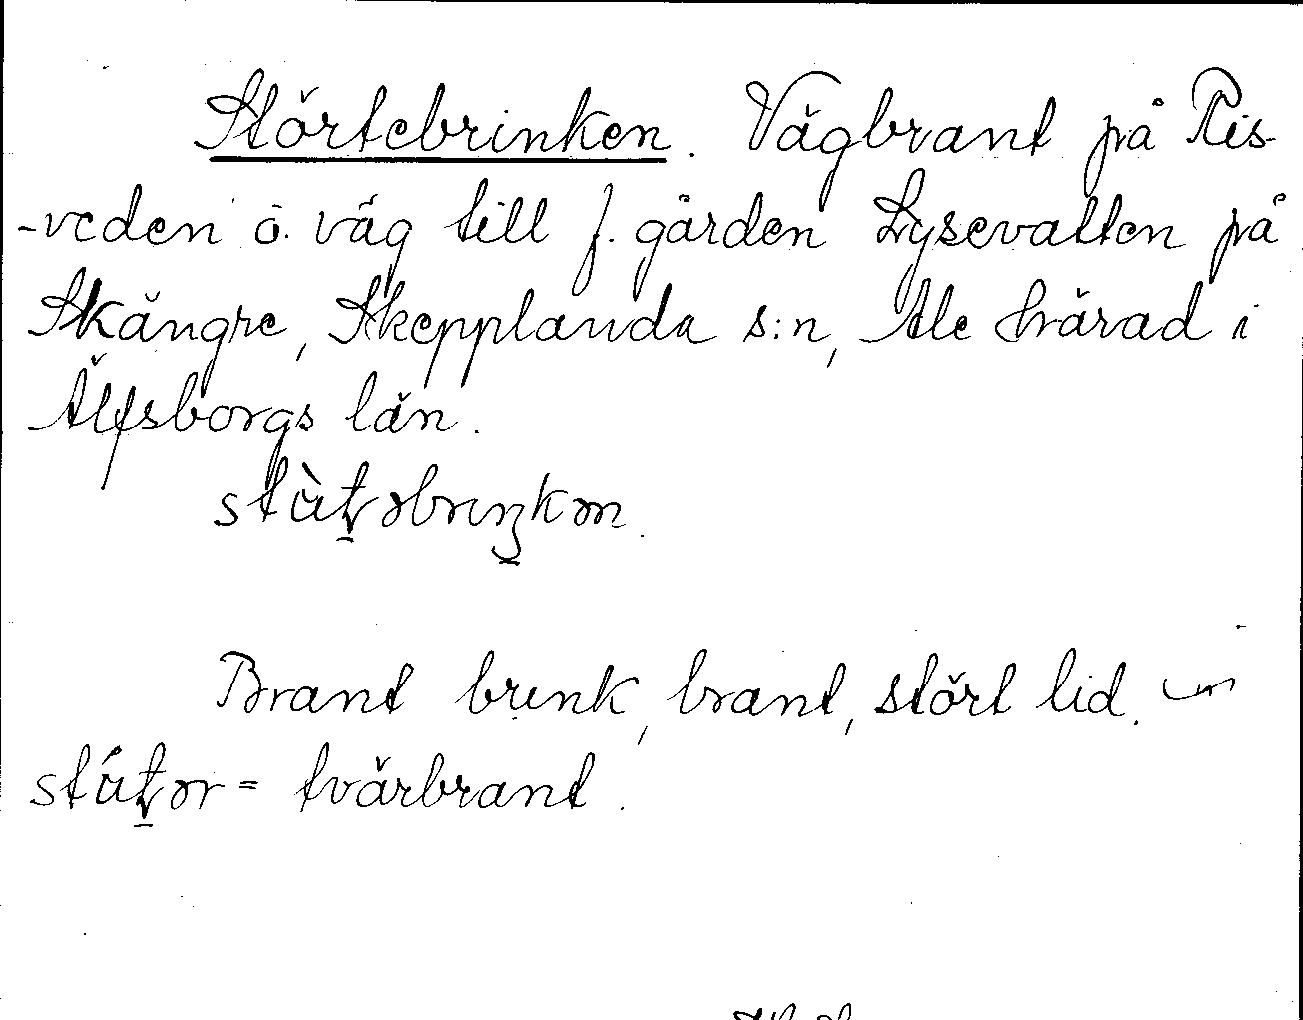 Störtebrinken. Vägbrant på Ris-
-veden ö. väg till f. gården Lysevatten på
Skångre, Skepplanda s:n, Ale härad i
Älfsborgs län.
Brant brink, brant, stört lid.
= tvärbrant.